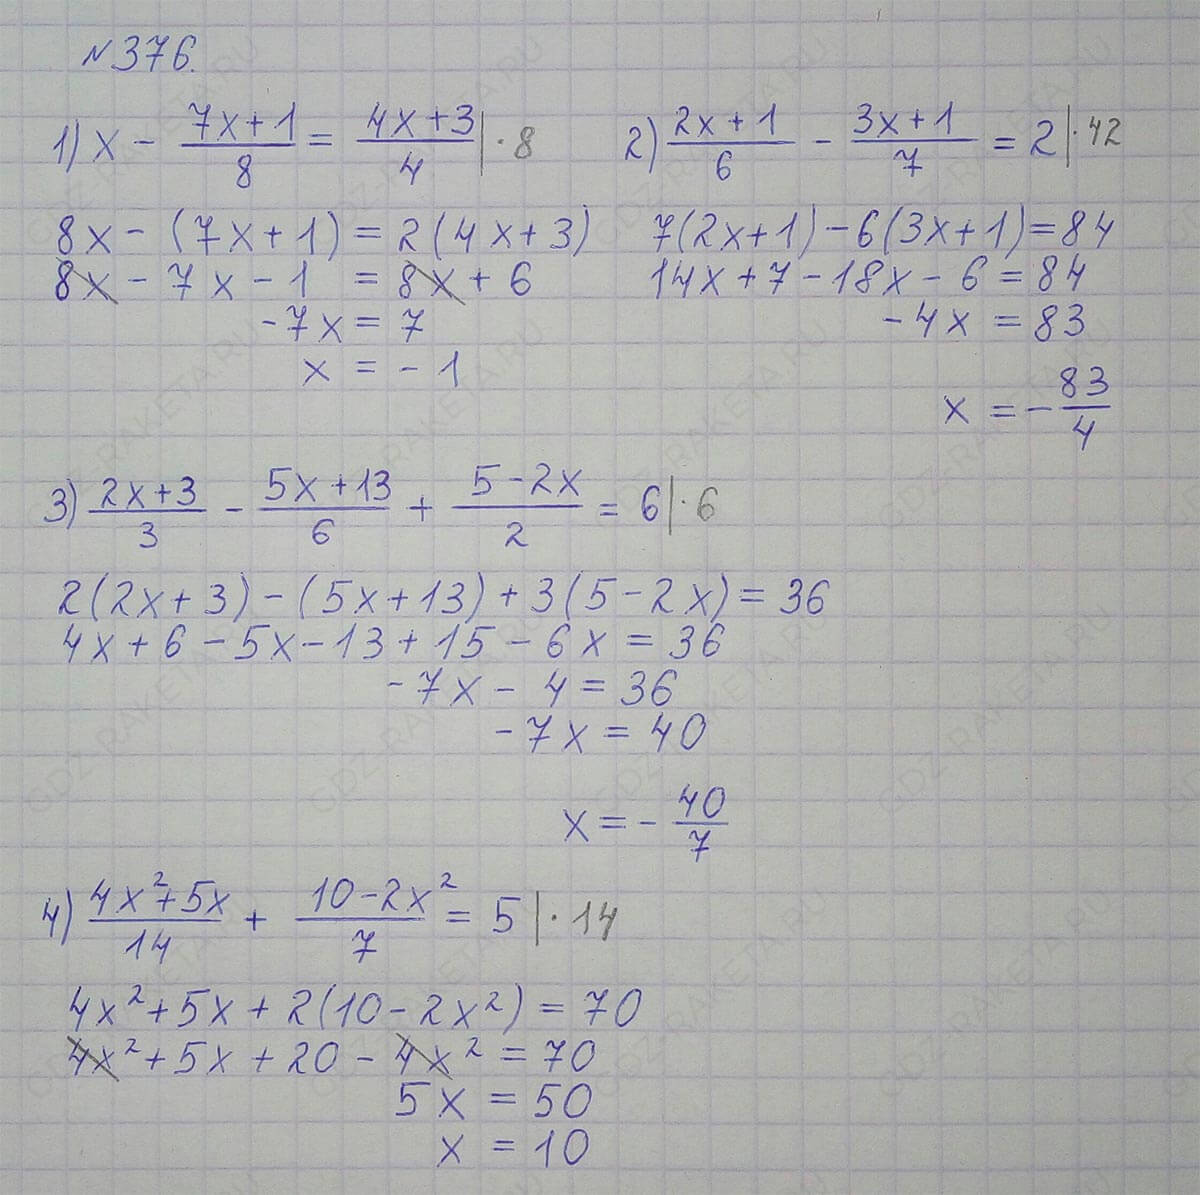 №376.
1) x - (7x+1)/8 = (4x+3)/4 |·8
8x - (7x+1) = 2(4x+3)
8x - 7x - 1 = 8x + 6
-7x = 7
x = -1
2) (2x+1)/6 - (3x+1)/7 = 2 |·42
7(2x+1) - 6(3x+1) = 84
14x + 7 - 18x - 6 = 84
-4x = 83
x = -83/4
3) (2x+3)/3 - (5x+13)/6 + (5-2x)/2 = 6 |·6
2(2x+3) - (5x+13) + 3(5-2x) = 36
4x + 6 - 5x - 13 + 15 - 6x = 36
-7x - 4 = 36
-7x = 40
x = -40/7
4) (4x²+5x)/14 + (10-2x²)/7 = 5 |·14
4x² + 5x + 2(10-2x²) = 70
4x² + 5x + 20 - 4x² = 70
5x = 50
x = 10
GDZ-RAKETA.RU